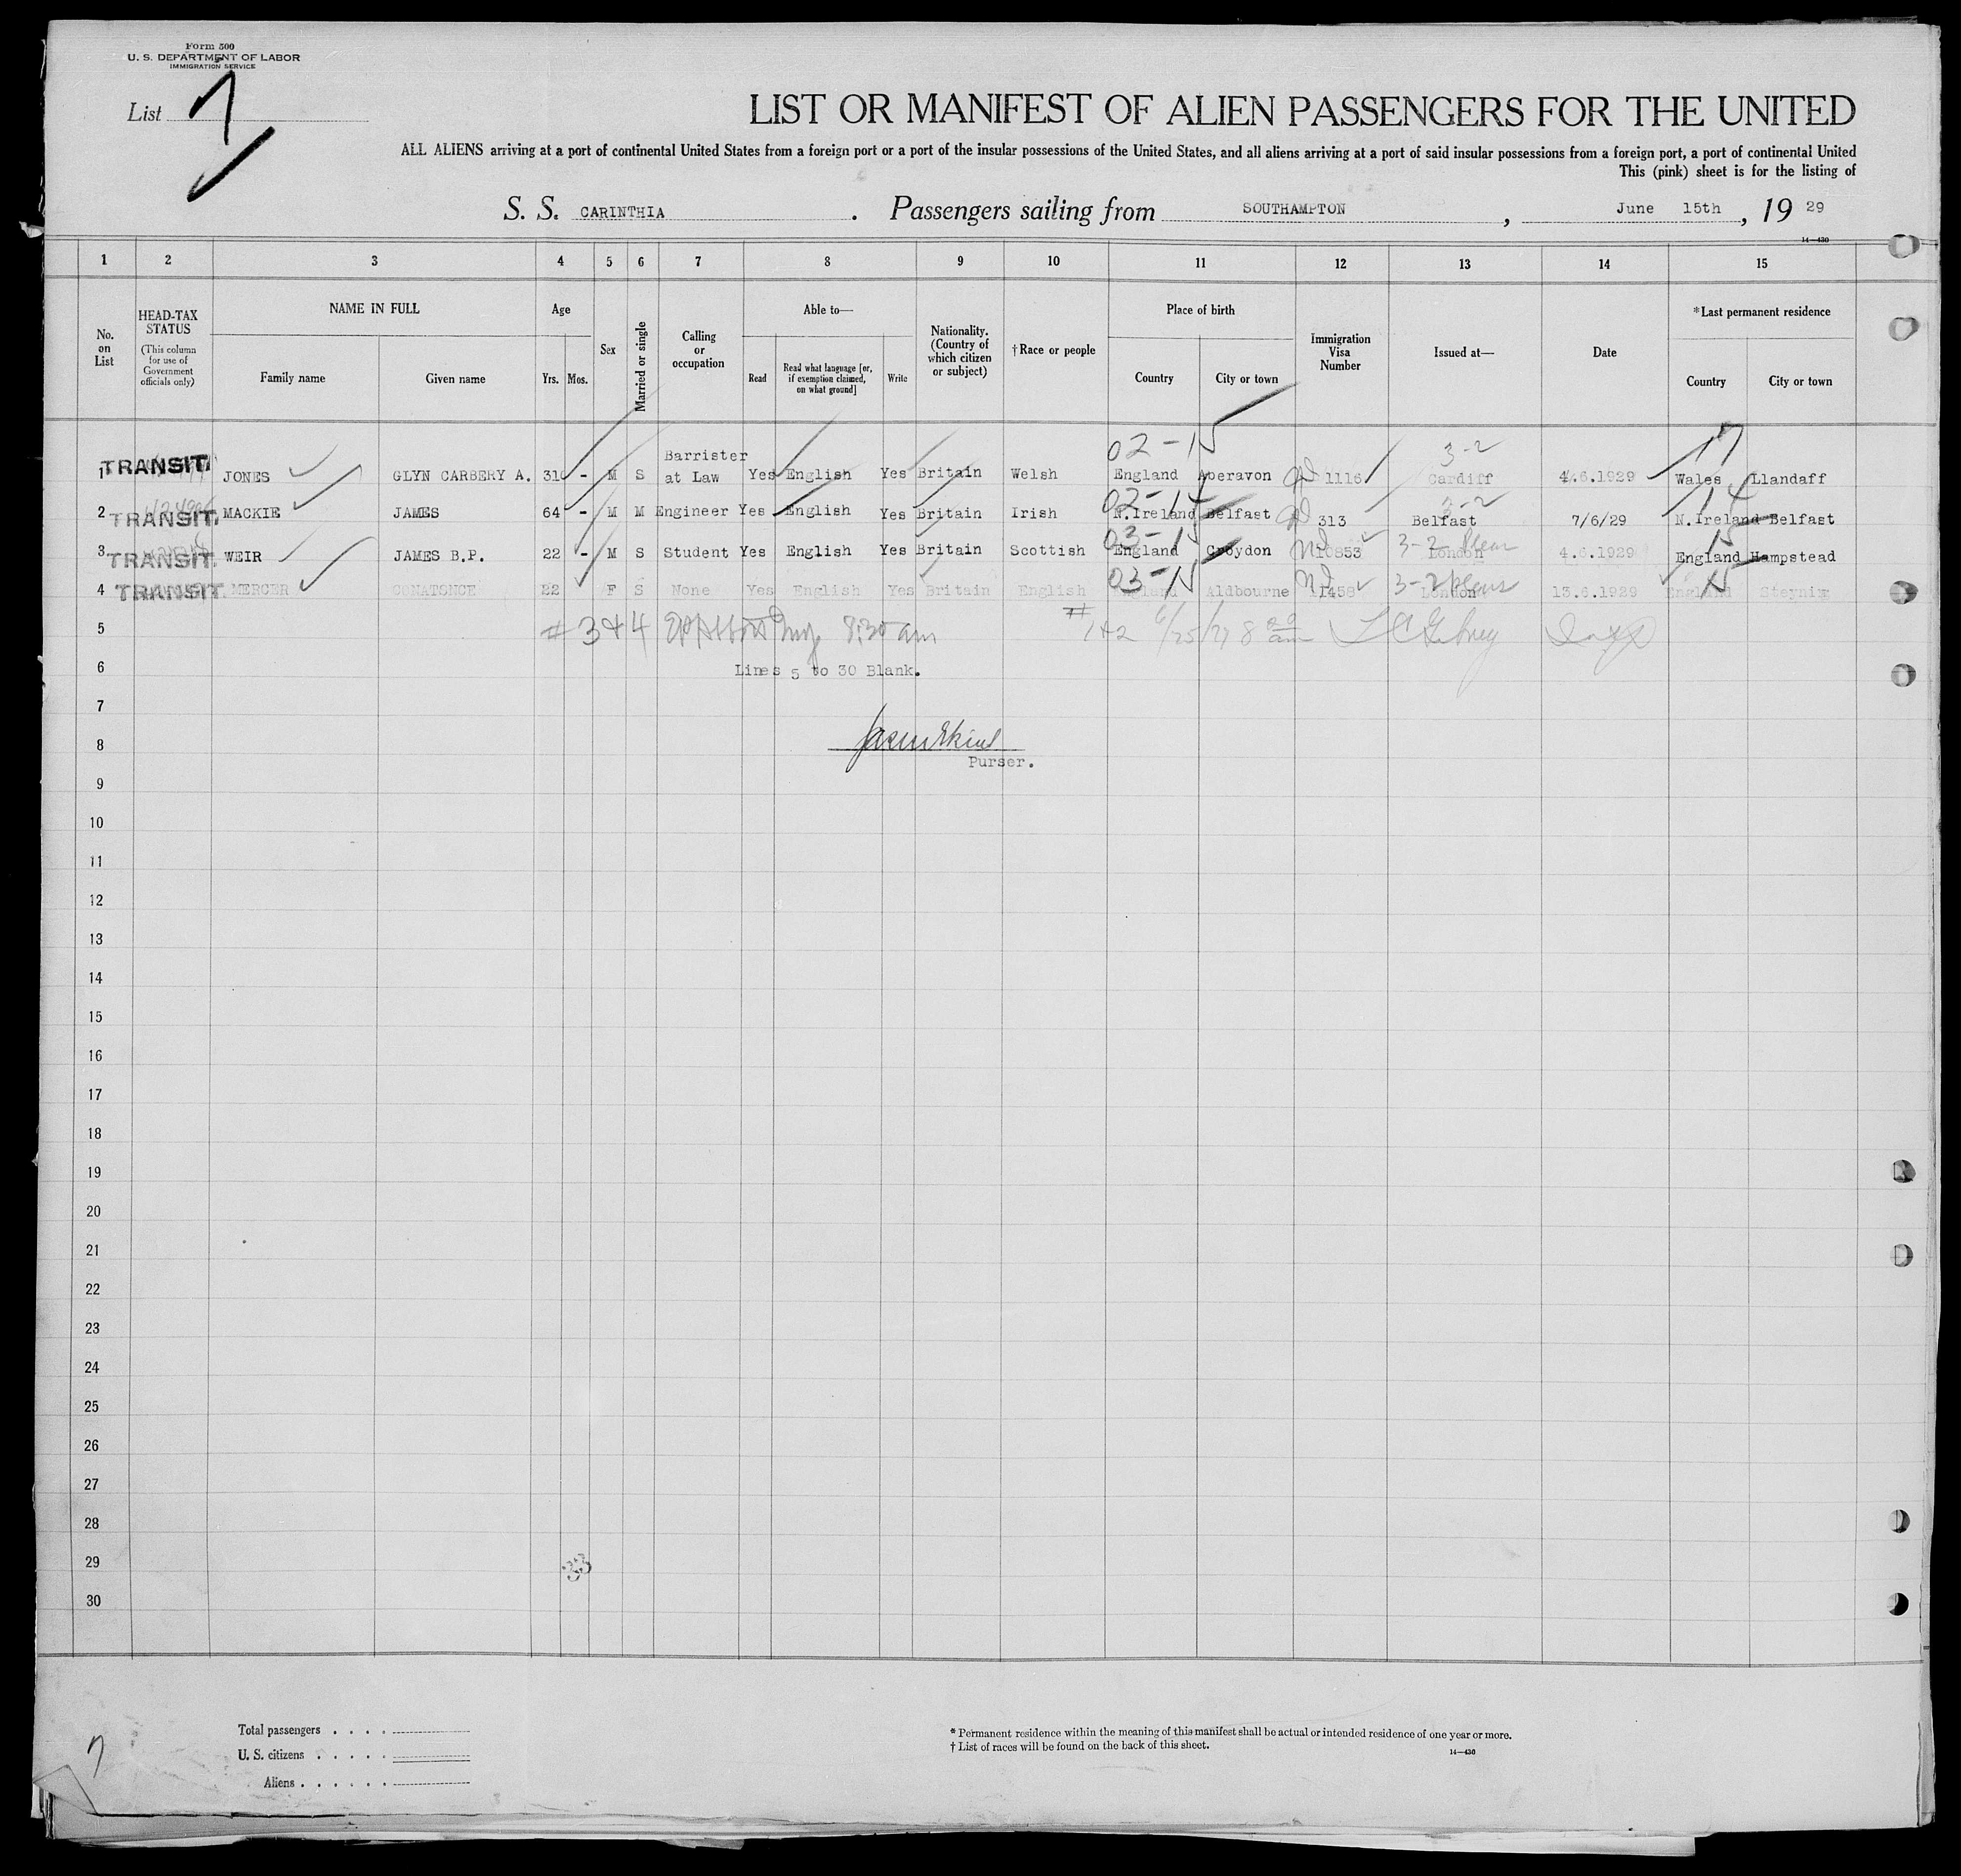 Form 500
U. S. DEPARTMENT OF LABOR
IMMIGRATION SERVICE
List 7
LIST OR MANIFEST OF ALIEN PASSENGERS FOR THE UNITED
ALL ALIENS arriving at a port of continental United States from a foreign port or a port of the insular possessions of the United States, and all aliens arriving at a port of said insular possessions from a foreign port, a port of continental United
This (pink) sheet is for the listing of
S. S. CARINTHIA . Passengers sailing from SOUTHAMPTON , June 15th , 19 29
14—430
1 2 3 4 5 6 7 8 9 10 11 12 13 14 15
No. on List
HEAD-TAX STATUS
(This column for use of Government officials only)
NAME IN FULL
Family name Given name
Age
Yrs. Mos.
Sex
Married or single
Calling or occupation
Able to—
Read Read what language [or, if exemption claimed, on what ground] Write
Nationality. (Country of which citizen or subject)
†Race or people
Place of birth
Country City or town
Immigration Visa Number
Issued at—
Date
*Last permanent residence
Country City or town
02-15 3-2 17
1 TRANSIT JONES GLYN CARBERY A. 31 - M S Barrister at Law Yes English Yes Britain Welsh England Aberavon 1116 Cardiff 4.6.1929 Wales Llandaff
02-14 3-2 14
2 TRANSIT MACKIE JAMES 64 - M M Engineer Yes English Yes Britain Irish N.Ireland Belfast 313 Belfast 7/6/29 N.Ireland Belfast
03-15 3-2 15
3 TRANSIT WEIR JAMES B.P. 22 - M S Student Yes English Yes Britain Scottish England Croydon 10853 London 4.6.1929 England Hampstead
03-15 3-2 15
4 TRANSIT MERCER CONATONCE 22 F S None Yes English Yes Britain English England Aldbourne 11458 London 13.6.1929 England Steyning
5 # 3 & 4 8:30 am # 1+2 6/25/29 8 am
6 Lines 5 to 30 Blank.
7
8
Purser.
9
10
11
12
13
14
15
16
17
18
19
20
21
22
23
24
25
26
27
28
29
33
30
Total passengers . . . .
U. S. citizens . . . . .
Aliens . . . . . .
7
* Permanent residence within the meaning of this manifest shall be actual or intended residence of one year or more.
† List of races will be found on the back of this sheet.
14—430